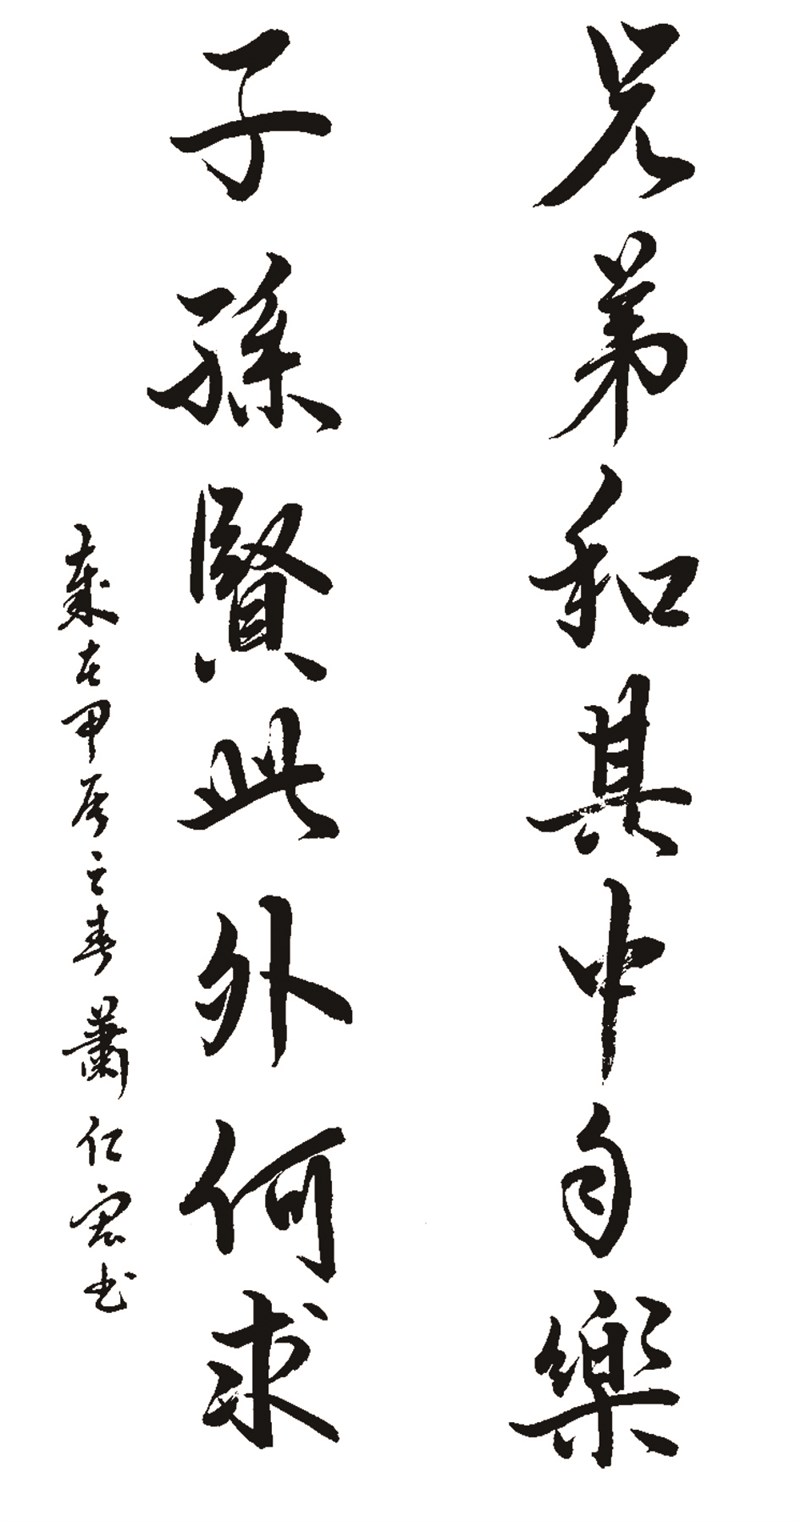 兄弟和其中自樂
子孫賢此外何求
歲在甲辰之春蕭仁宏书